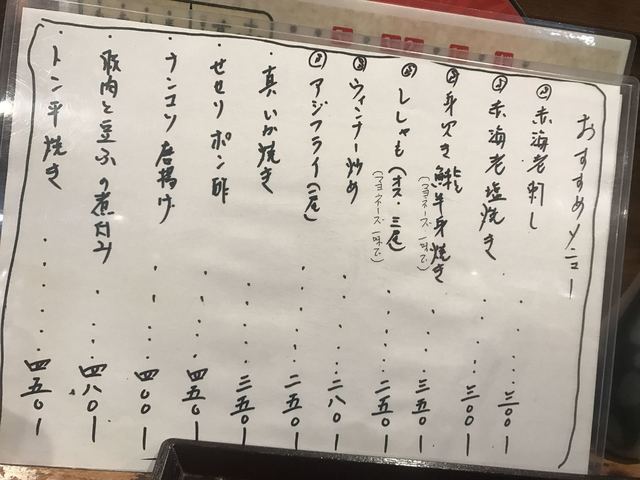 おすすめメニュー
赤海老刺し ・・・・・ 三〇〇ー
赤海老塩焼き ・・・・ 三〇〇ー
身欠き鰊半身焼き ・・・・ 三五〇ー
(マヨネーズ一味で)
ししゃも(オス・三尾) ・・・・ 二五〇ー
(マヨネーズ一味で)
ウィンナー炒め ・・・・・ 二八〇ー
アジフライ(一尾) ・・・・・ 二五〇ー
・真いか焼き ・・・・・ 三五〇ー
・せせりポン酢 ・・・・・ 四五〇ー
・ナンコツ唐揚げ ・・・・ 四〇〇ー
・豚肉と豆ふの煮込み ・・・・ 四八〇ー
・トン平焼き ・・・・・ 四五〇ー